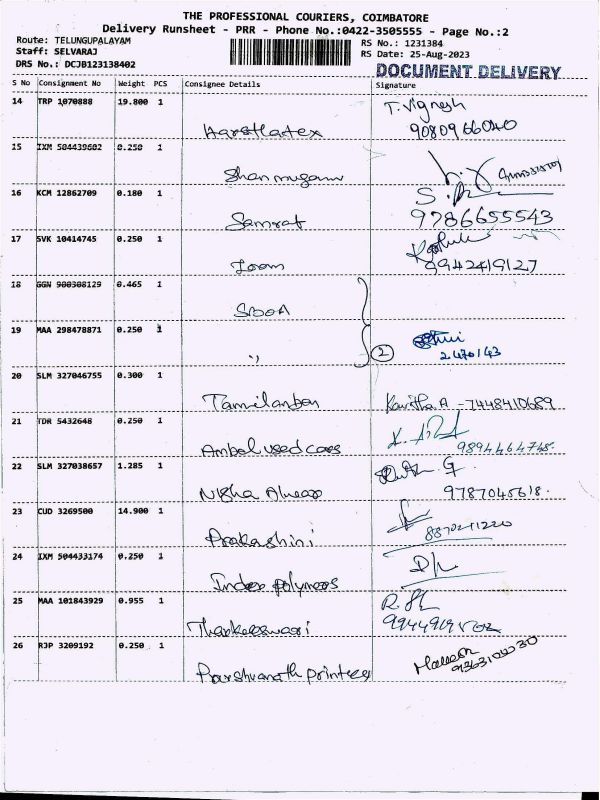 THE PROFESSIONAL COURIERS, COIMBATORE
Delivery Runsheet - PRR - Phone No.:0422-3505555 - Page No.:2
Route: TELUNGUPALAYAM
Staff: SELVARAJ
DRS No.: DCJB123138402
RS No.: 1231384
RS Date: 25-Aug-2023
DOCUMENT DELIVERY
S No Consignment No Weight PCS Consignee Details Signature
14 TRP 1070888 19.800 1
T. Vignesh
9080966040
15 IXM 504439602 0.250 1
Shanmugam
16 KCM 12862709 0.180 1
Samrat
9786655543
17 SVK 10414745 0.250 1
Loom
9942419127
18 GGN 900308129 0.465 1
19 MAA 298478871 0.250 1
"
2
2470143
20 SLM 327046755 0.300 1
Tamilanban Kavitha A - 7448410689
21 TDR 5432648 0.250 1
Ambal used cars
9894464748
22 SLM 327038657 1.285 1
Nisha
9787045618.
23 CUD 3269500 14.900 1
Prakashini
24 IXM 504433174 0.250 1
Index polymers
25 MAA 101843929 0.955 1
Tharkeeswari
26 RJP 3209192 0.250 1
Parshvanath printers